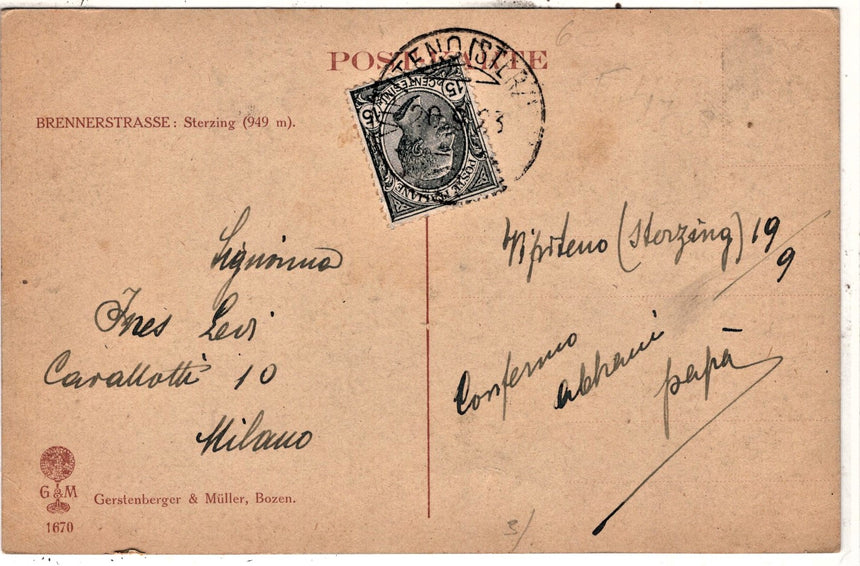 POSTKARTE
BRENNERSTRASSE: Sterzing (949 m).
15 CENTESIMI 15
POSTE ITALIANE
VIPITENO (STERZ
20.9.23
Signorina
Ines Levi
Cavallotti 10
Milano
Vipiteno (Sterzing) 19/9
Confermo
abbracci
papà
G & M
1670
Gerstenberger & Müller, Bozen.
6
3/